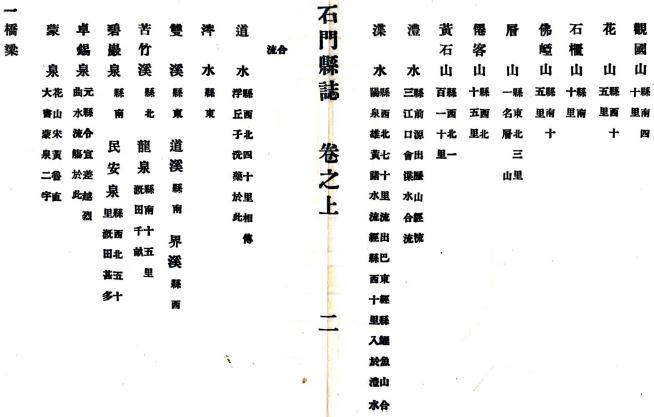 觀國山 縣南四十里
花山 縣西十五里
石櫃山 縣南十里
佛崆山 縣南十五里
層山 縣東北三里一名層山
僊客山 縣西北十五里
黃石山 縣西北一百一十里
澧水 縣前源出歷山經流三江口會渫水合流
渫水 縣西北七十里流出巴東經縣鯉魚山合陽泉雄黃諸水流經縣西十里入於澧水
石門縣誌 卷之上 二
合流
道水 縣西北四十里相傳浮丘子洗藥於此
渒水 縣東
雙溪 縣東 道溪 縣南 界溪 縣西
苦竹溪 縣北 龍泉 縣南十五里溉田千畝
碧巖泉 縣南 民安泉 縣西北五十里溉田甚多
卓錫泉 元縣令宜差越烈曲水流觴於此
蒙泉 花山宋黃魯直大書蒙泉二字
一橋梁